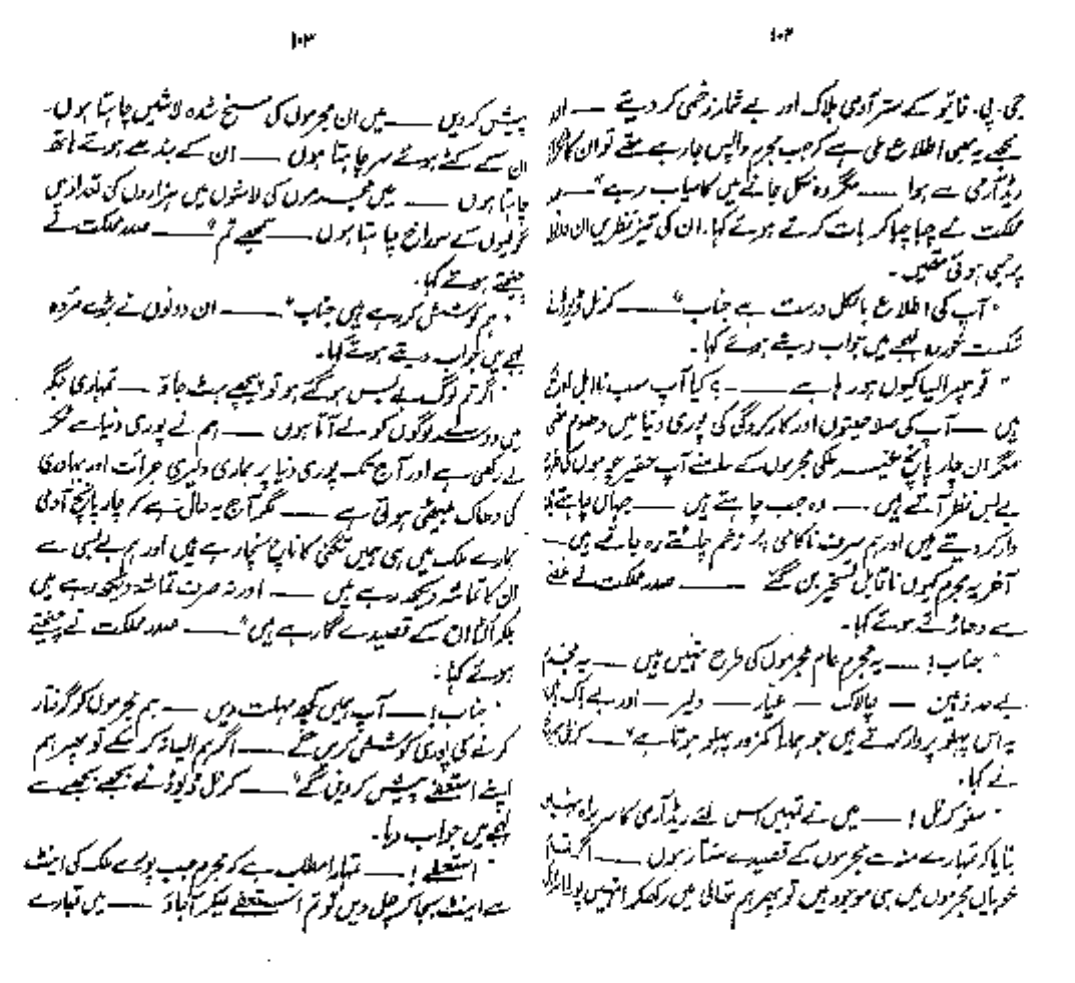 ۱۰۲
جی۔پی۔ فائیو کے ستر آدمی ہلاک اور بے شمار زخمی کر دیتے —— اور
مجھے یہ بھی اطلاع ملی ہے کہ جب مجرم واپس جا رہے تھے تو ان کا ٹکراؤ
ریڈ آرمی سے ہوا —— مگر وہ نکل جانے میں کامیاب رہے" ——
مملکت نے چبا چبا کر بات کرتے ہوئے کہا۔ ان کی تیز نظریں ان دونوں
پر جمی ہوئی تھیں۔
"آپ کی اطلاع بالکل درست ہے جناب" —— کرنل ڈیوڈ نے
شکست خوردہ لہجے میں جواب دیتے ہوئے کہا۔
"تو پھر ایسا کیوں ہو رہا ہے —— ؟ کیا آپ سب نااہل لوگ
ہیں —— آپ کی صلاحیتوں اور کارکردگی کی پوری دنیا میں دھوم تھی
مگر ان چار پانچ غیر ملکی مجرموں کے سامنے آپ حقیر چوہوں کی طرح
بے بس نظر آتے ہیں —— وہ جب چاہتے ہیں —— جہاں چاہتے ہیں
وار کر دیتے ہیں اور ہم صرف ناکامی پر زخم چاٹتے رہ جاتے ہیں —
آخر یہ مجرم کیوں ناقابل تسخیر بن گئے —— صدر مملکت نے غصے
سے دھاڑتے ہوئے کہا۔
"جناب! —— یہ مجرم عام مجرموں کی طرح نہیں ہیں —— یہ مجرم
بے حد ذہین — چالاک — عیار —— دلیر — اور بے باک ہیں
یہ اس پہلو پر وار کرتے ہیں جو ہمارا کمزور پہلو ہوتا ہے" —— کرنل
نے کہا۔
"سنو کرنل! —— میں نے تمہیں اس لئے ریڈ آرمی کا سربراہ نہیں
بنایا کہ تمہارے منہ سے مجرموں کے قصیدے سنتا رہوں —— اگر تمام
خوبیاں مجرموں میں ہی موجود ہیں تو پھر ہم تھالی میں رکھ کر انہیں پورا
۱۰۳
پیش کر دیں —— میں ان مجرموں کی مسخ شدہ لاشیں چاہتا ہوں۔
ان کے کٹے ہوئے سر چاہتا ہوں —— ان کے بندھے ہوتے ہاتھ
چاہتا ہوں —— میں مجرموں کی لاشوں میں ہزاروں کی تعداد میں
گولیوں کے سوراخ چاہتا ہوں —— سمجھے تم" —— صدر مملکت نے
چیختے ہوتے کہا۔
"ہم کوشش کر رہے ہیں جناب" —— ان دونوں نے بڑے مردہ
لہجے میں جواب دیتے ہوتے کہا۔
"اگر تم لوگ بے بس ہو گئے ہو تو پیچھے ہٹ جاؤ —— تمہاری جگہ
میں دوسرے لوگوں کو لے آتا ہوں —— ہم نے پوری دنیا سے ٹکر
لے رکھی ہے اور آج تک پوری دنیا پر ہماری دلیری جرات اور بہادری
کی دھاک بیٹھی ہوئی ہے —— مگر آج یہ حال ہے کہ چار پانچ آدمی
ہمارے ملک میں ہی ہمیں تگنی کا ناچ نچا رہے ہیں اور ہم بے بسی سے
ان کا تماشہ دیکھ رہے ہیں —— اور نہ صرف تماشہ دیکھ رہے ہیں
بلکہ الٹا ان کے قصیدے گا رہے ہیں" —— صدر مملکت نے چیختے
ہوئے کہا۔
"جناب! —— آپ ہمیں کچھ مہلت دیں —— ہم مجرموں کو گرفتار
کرنے کی پوری کوشش کریں گے —— اگر ہم ایسا نہ کر سکے تو پھر ہم
اپنے استعفے پیش کر دیں گے" —— کرنل ڈیوڈ نے بجھے بجھے سے
لہجے میں جواب دیا۔
"استعفے! —— تمہارا مطلب ہے کہ مجرم جب پورے ملک کی اینٹ
سے اینٹ بجا کر چل دیں تو تم استعفے لیکر آ جاؤ —— میں تمہارے